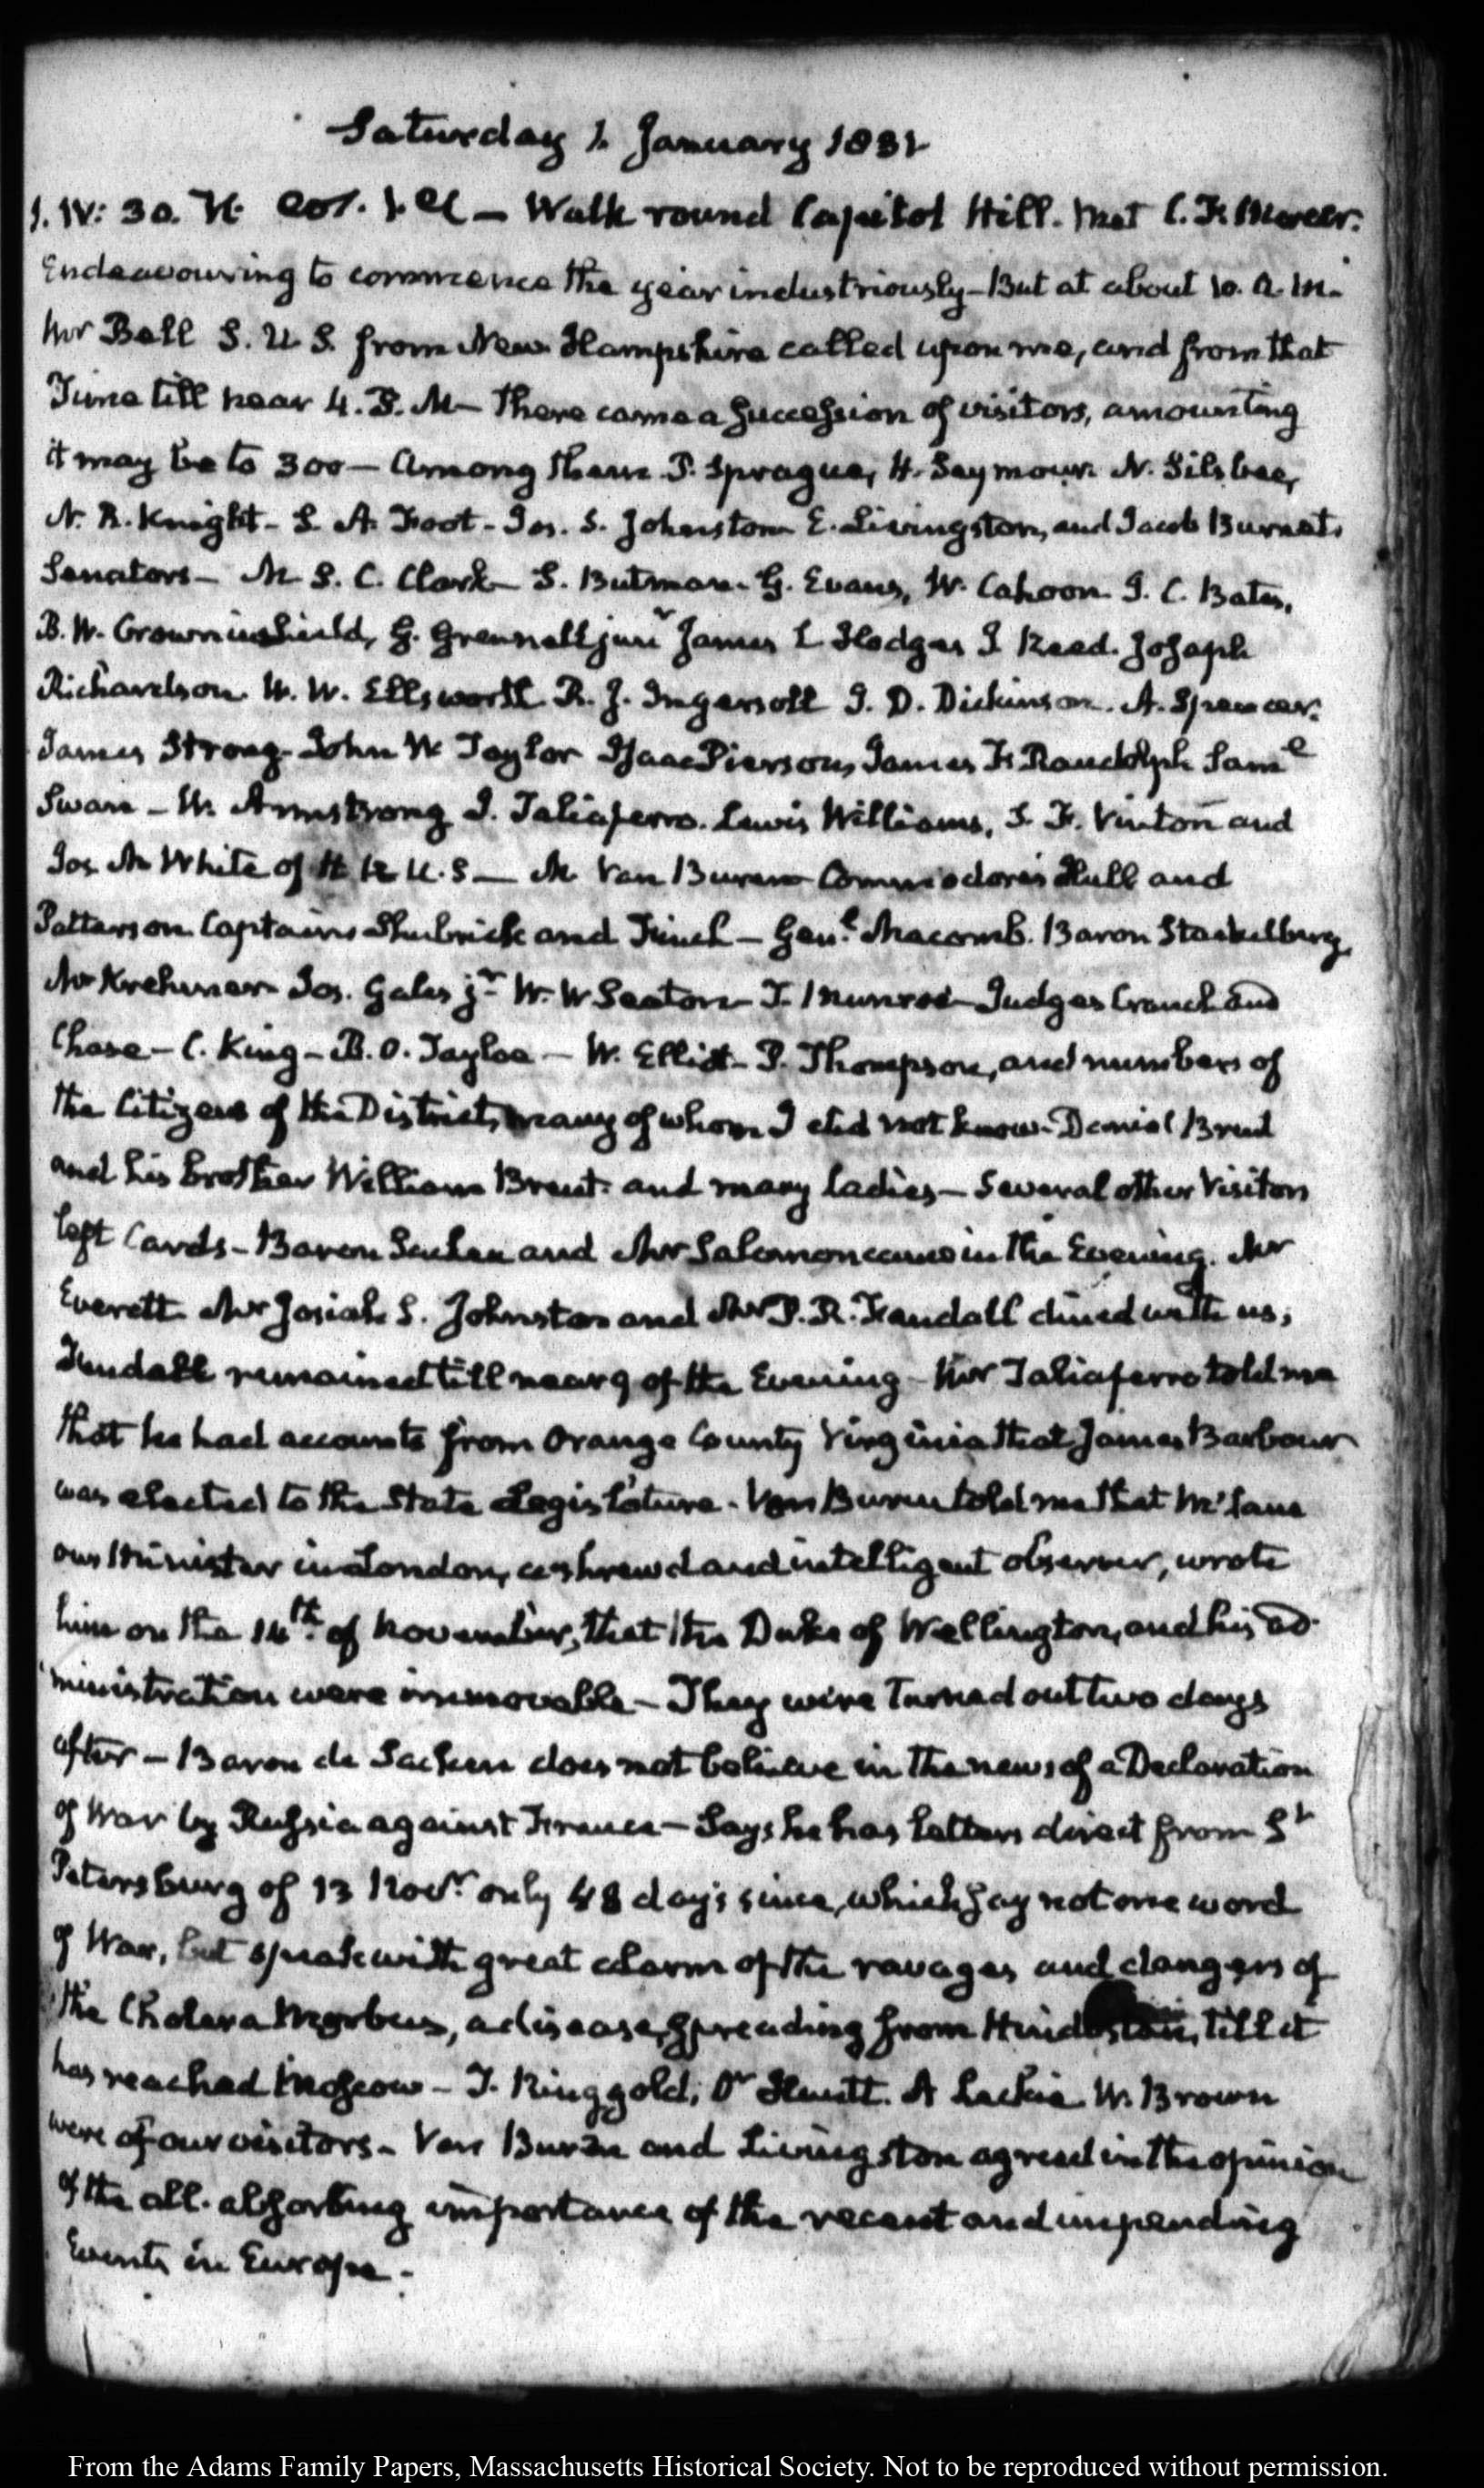 Saturday 1. January 1831
1. IV: 30. Walk round Capitol Hill. Met C. F. Mercer.
Endeavouring to commence the year industriously—But at about 10. A. M.
Mr Bell S. U S. from New Hampshire called upon me, and from that
Time till near 4. P. M— There came a succession of visitors, amounting
it may be to 300— Among them P. Sprague, H. Seymour N. Silsbee,
N. R. Knight— S. A. Foot— Jos. S. Johnston E. Livingston, and Jacob Burnet,
Senators— S. C. Clark— S. Butman— G. Evans, W. Cahoon I. C. Bates,
B. W. Crowninshield, G. Grennell junr James L Hodges J Reed. Joseph
Richardson. W. W. Ellsworth R. J. Ingersoll J. D. Dickinson. A. Spencer.
James Strong— John W Taylor Isaac Pierson, James F Randolph Saml
Swan— W. Armstrong J. Taliaferro. Lewis Williams, S. F. Vinton and
Jos. M White of H R U. S— M Van Buren Commodores Hull and
Patterson Captains Shubrick and Finch— Genl Macomb. Baron Stackelberg
Mr Krehmer Jos. Gales jr W. W Seaton— T. Munroe— Judges Cranch and
Chase— C. King— B. O. Tayloe— W. Elliot— P. Thompson, and numbers of
the Citizens of the District, many of whom I did not know— Daniel Brent
and his brother William Brent. and many Ladies— Several other Visitors
left Cards— Baron Sacken and Mr Salomon came in the Evening. Mr
Everett Mr Josiah S. Johnston and Mr P. R. Fendall dined with us;
Fendall remained till near 9 of the Evening— Mr Taliaferro told me
that he had accounts from Orange County Virginia that James Barbour
was elected to the State Legislature. Van Buren told me that McLane
our Minister in London, a shrewd and intelligent observer, wrote
him on the 14th of November, that the Duke of Wellington, and his ad-
ministration were immovable— They were turned out two days
after— Baron de Sacken does not believe in the news of a Declaration
of War by Russia against France— Says he has letters direct from St
Petersburg of 13 Novr only 48 days since, which say not one word
of War, but speak with great alarm of the ravages and dangers of
the Cholera Morbus, a disease, spreading from Hindostan, till it
has reached Moscow— T. Ringgold, Dr Huntt. A Leckie W. Brown
were of our visitors— Van Buren and Livingston agreed in the opinion
of the all-absorbing importance of the recent and impending
Events in Europe.—
From the Adams Family Papers, Massachusetts Historical Society. Not to be reproduced without permission.